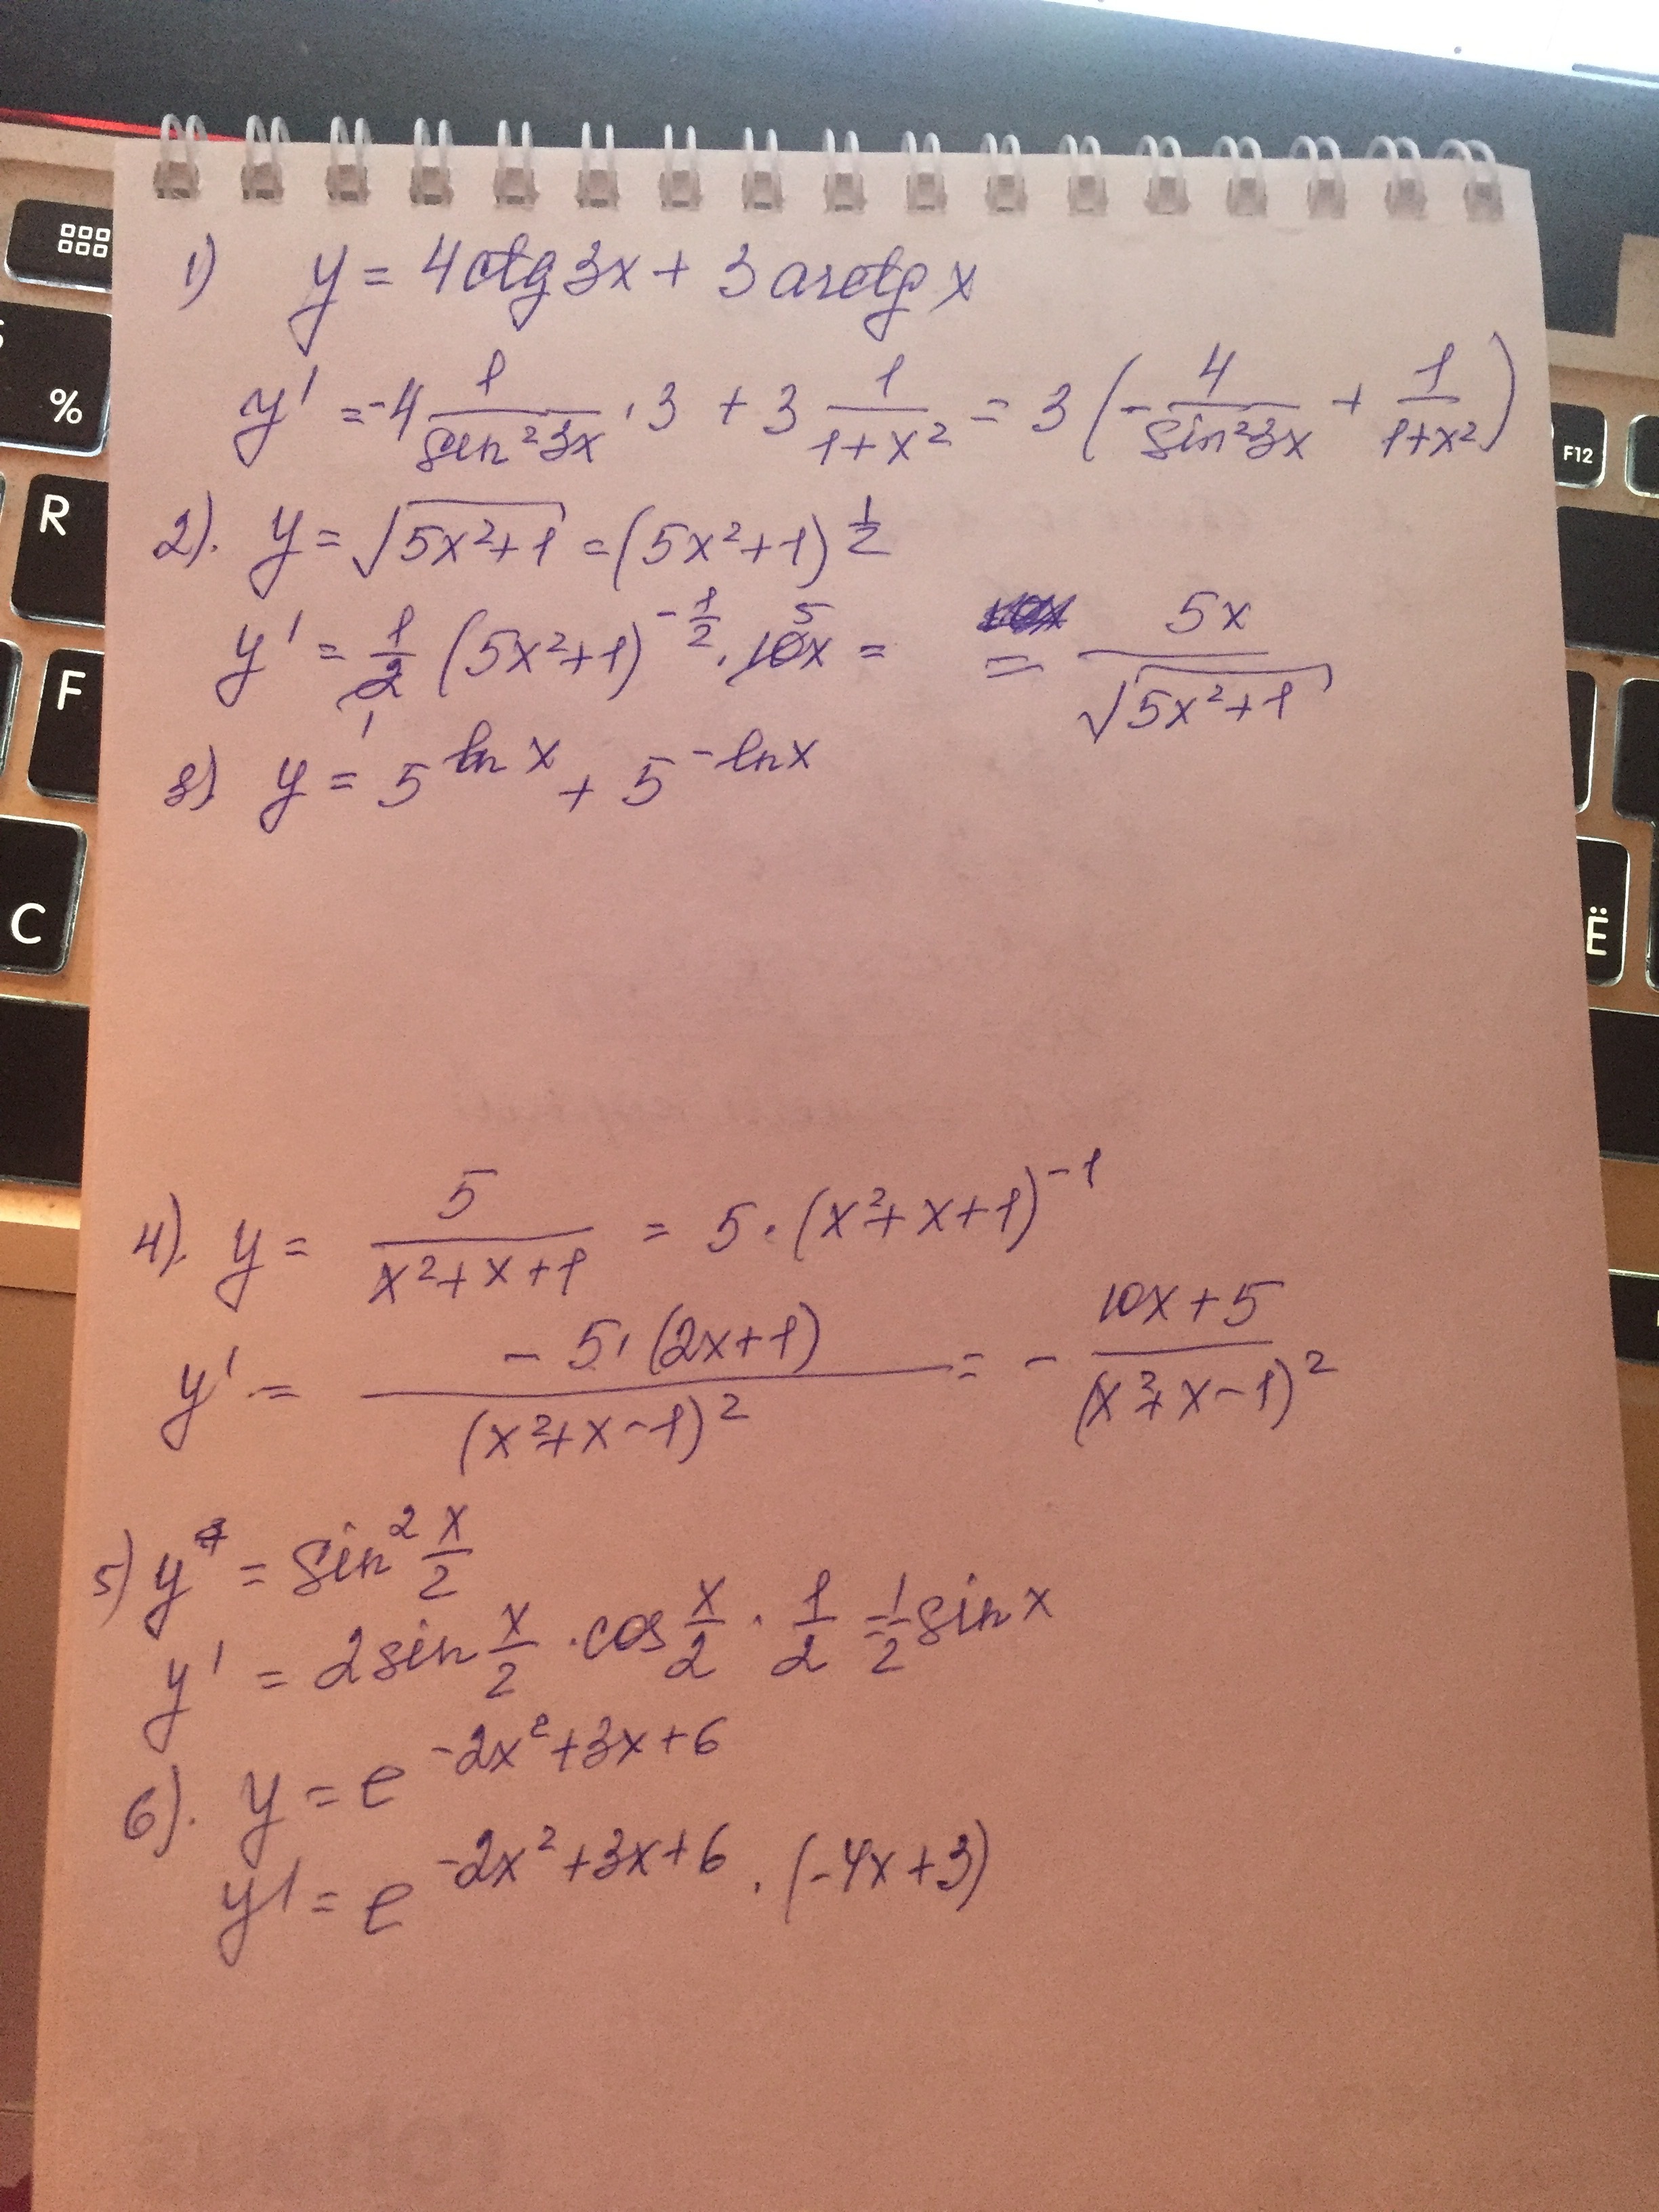 1) y = 4ctg3x + 3arctg x
y' = -4 1/sin²3x · 3 + 3 1/1+x² = 3(-4/sin²3x + 1/1+x²)
2). y = √5x²+1 = (5x²+1)^1/2
y' = 1/2 (5x²+1)^-1/2 · 10x = = 5x/√5x²+1
1 5
3) y = 5^ln x + 5^-ln x
4). y = 5/x²+x+1 = 5·(x²+x+1)^-1
y' = -5·(2x+1)/(x²+x-1)² = - 10x+5/(x²+x-1)²
5) y = sin² x/2
y' = 2sin x/2 · cos x/2 · 1/2 = 1/2 sin x
6). y = e^-2x²+3x+6
y' = e^-2x²+3x+6 · (-4x+3)
%
R
F
C
F12
Ë